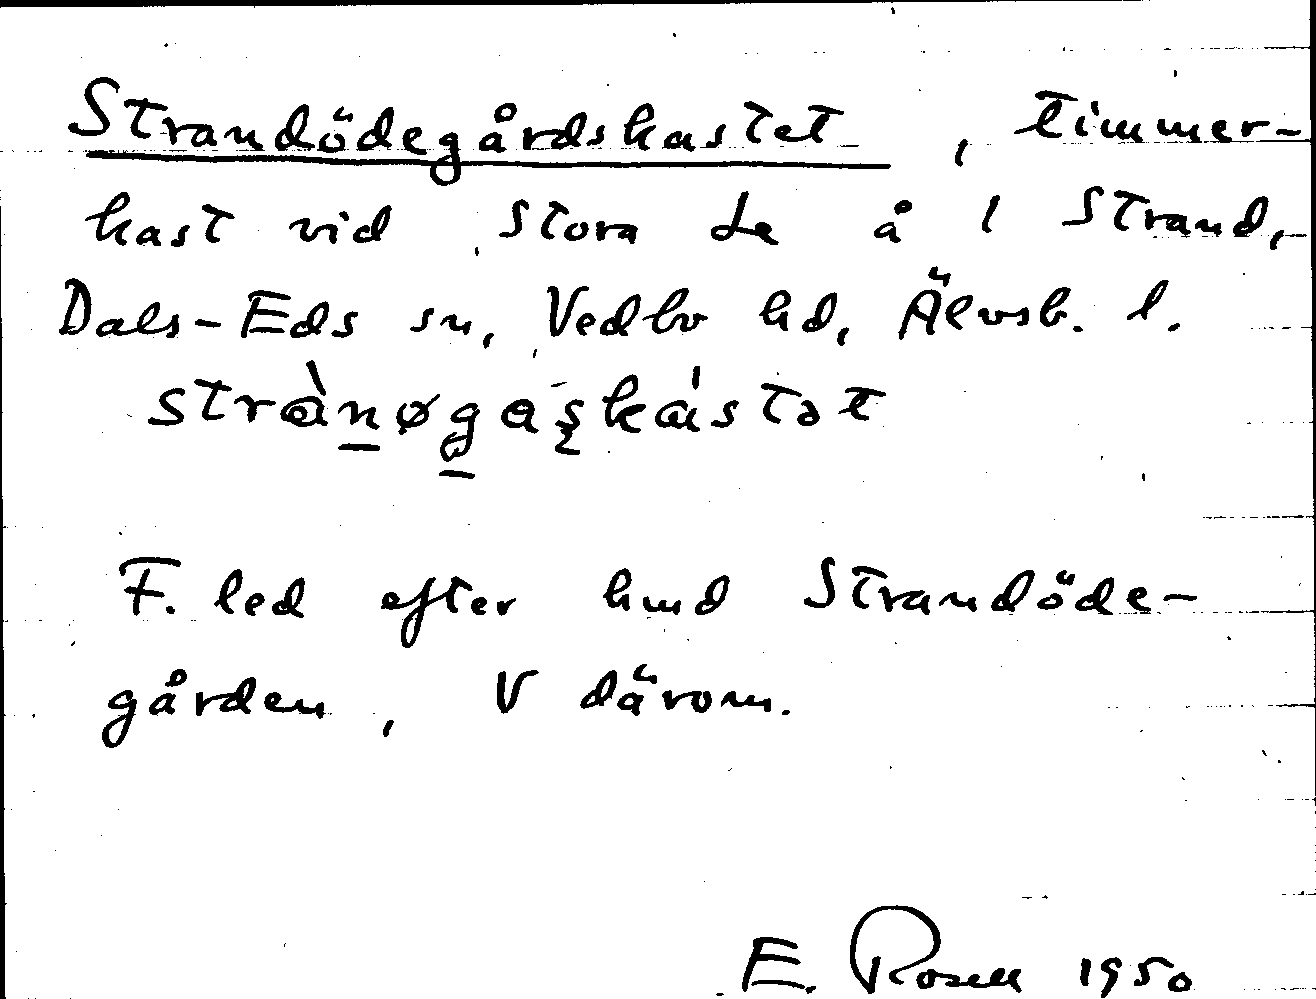 Strandödegårdskastet, timmer-
kast vid Stora Le å i Strand,
Dals-Eds sn, Vedbo hd, Älvsb. l.
stràn̲øg̲aşkástət
F. led efter hmd Strandöde-
gården, V därom.
E. Rosell 1950